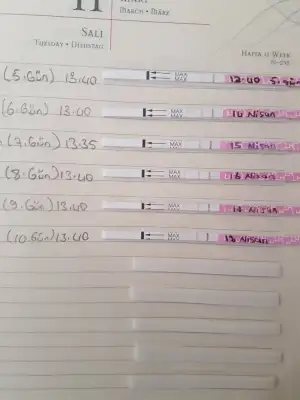 11
MART
MARCH • MARS
SALI
TUESDAY • DIENSTAG
HAFTA 11 WEEK
(5.Gün) 13.40 MAX MAX 12:40 5.gün
(6.Gün) 13.40 MAX MAX Nisan
(7.Gün) 13.35 MAX MAX 15 Nisan
(8.Gün) 13.40 MAX MAX 16 Nisan
(9.Gün) 13.40 MAX MAX Nisan
(10.Gün) 13.40 MAX MAX 18 Nisan